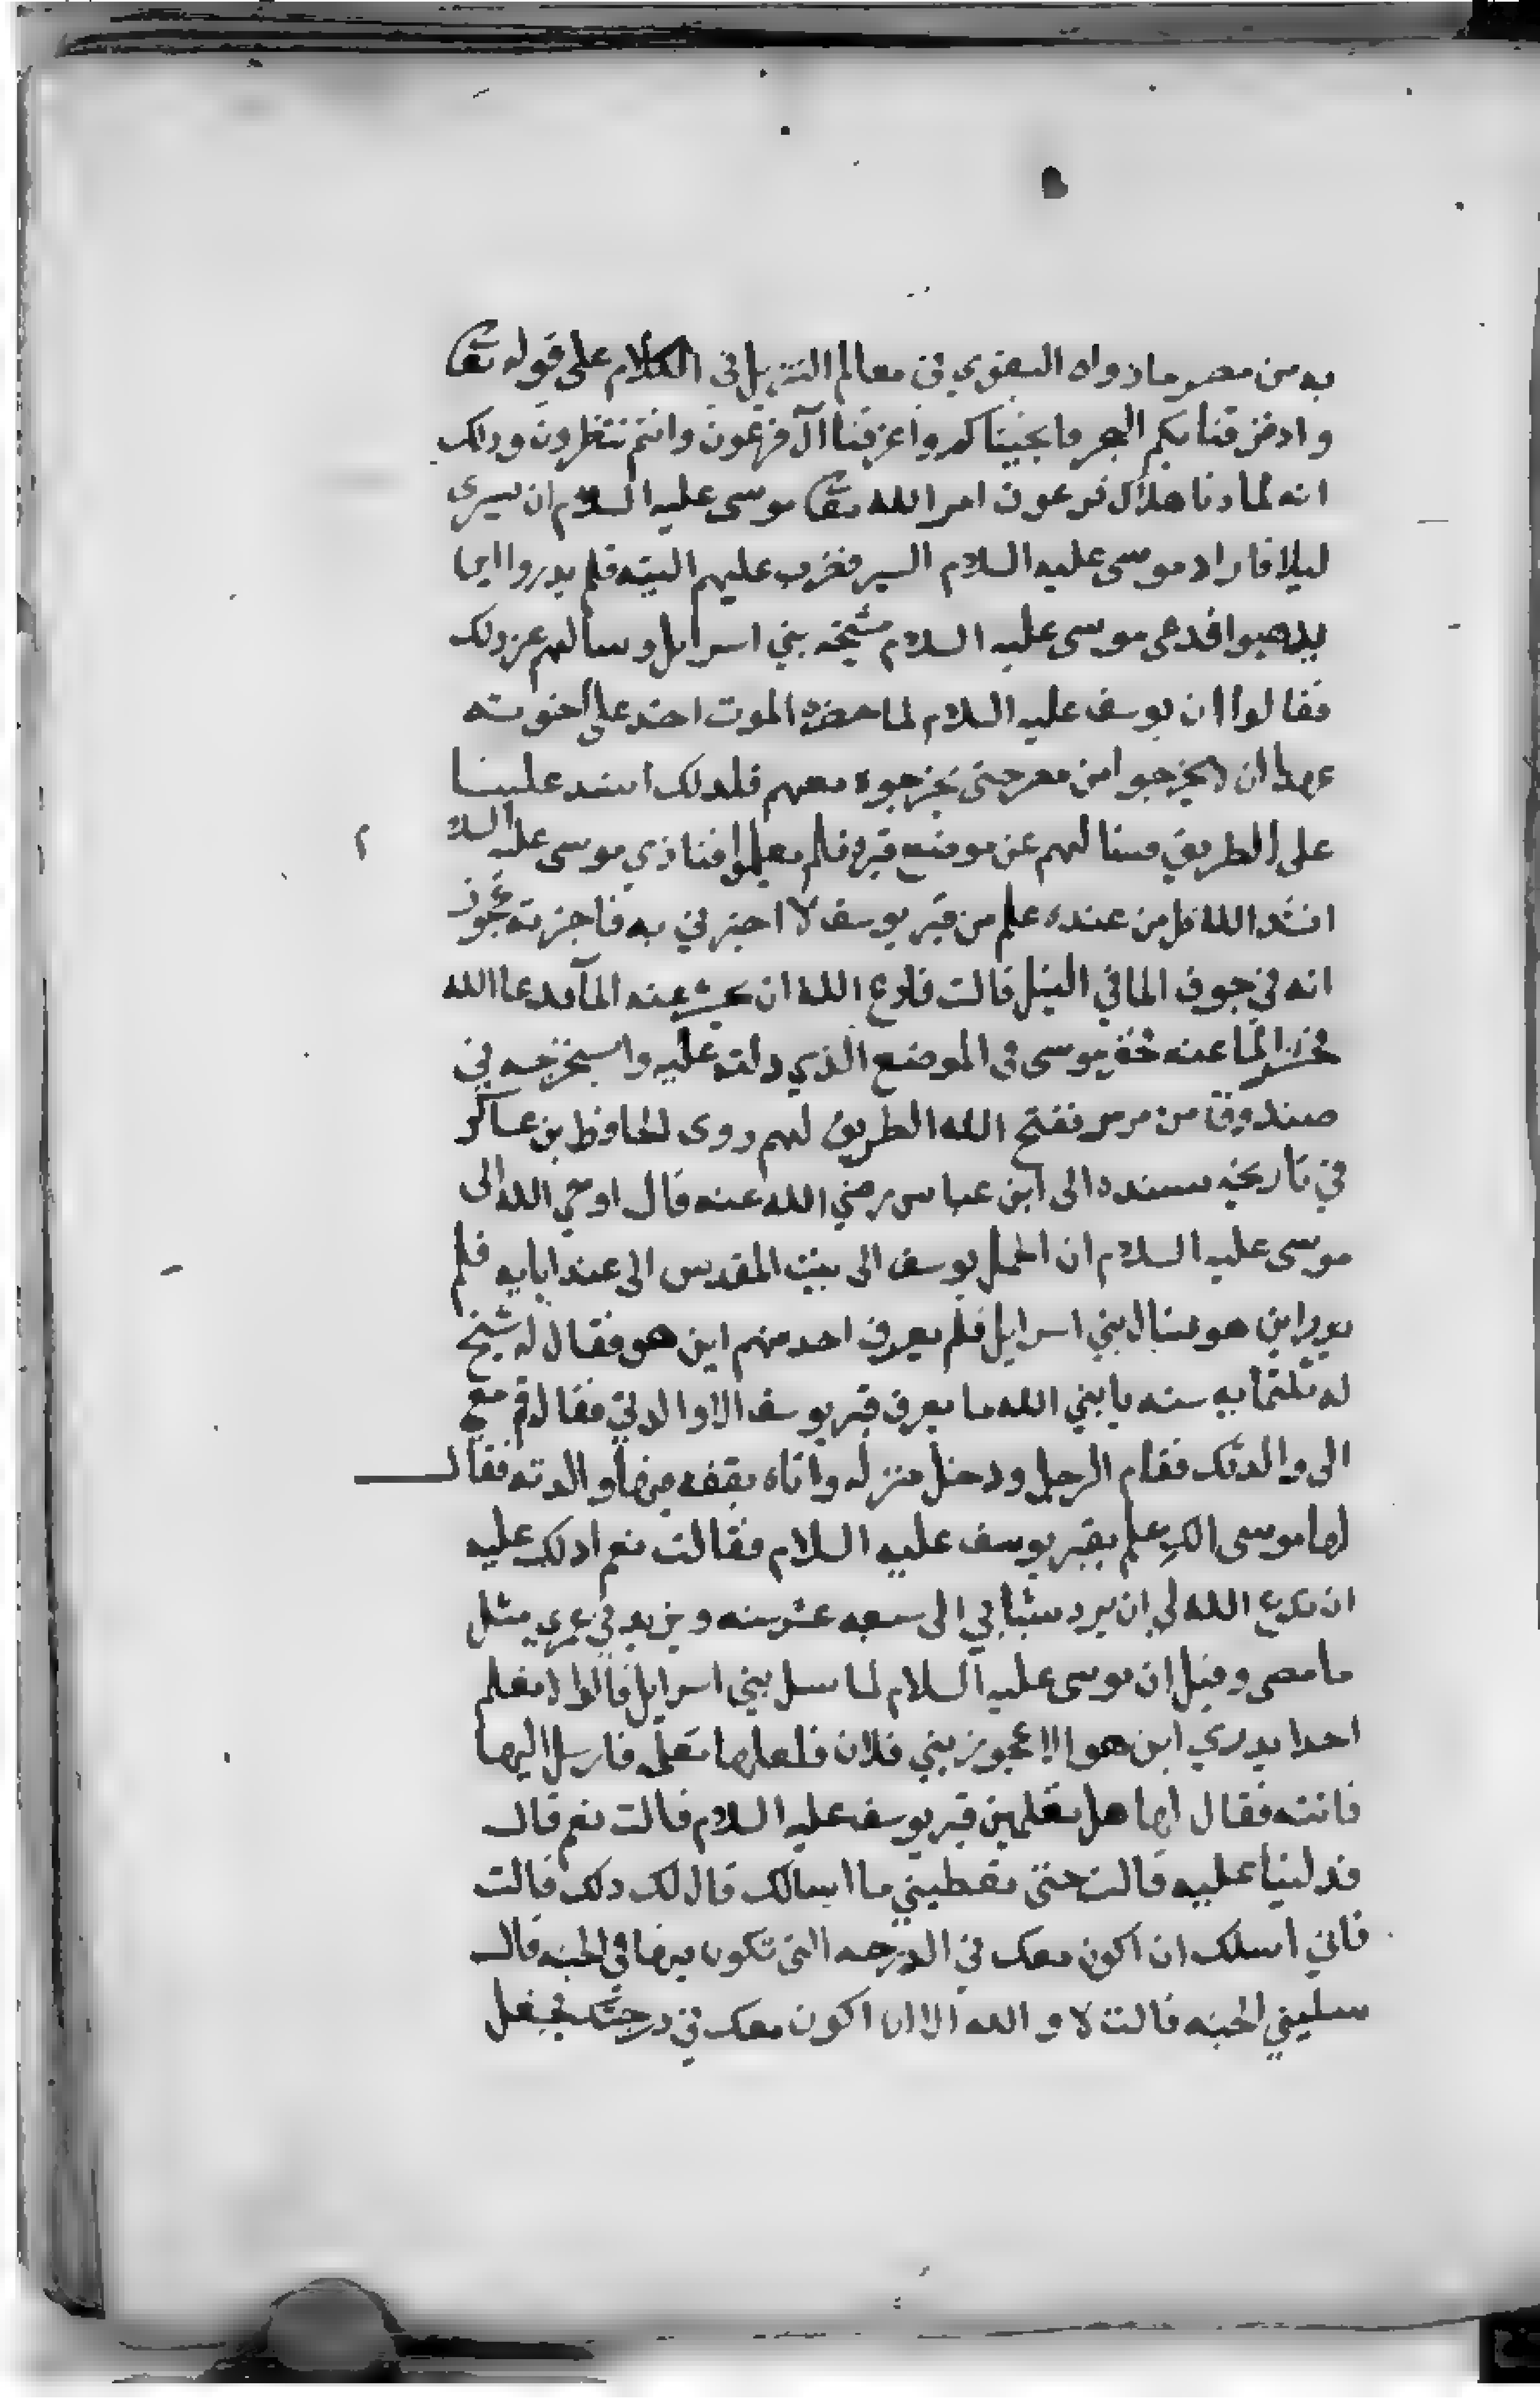 به من مصر ما رواه البغوي في معالم التنزيل في الكلام على قوله تعا
واد فرقنا بكم البحر فانجيناكم واغرقنا آل فرعون وانتم تنظرون ودلك
انه لما دنا هلاك فرعون امر الله تعا موسى عليه السلام ان يسري
ليلا فاراد موسى عليه السلام السير فضرب عليهم التيه فلم يدروا اين
يدهبوا فدعى موسى عليه السلام مشيخة بني اسرايل وسالهم عن دلك
فقالوا ان يوسف عليه السلام لما حضره الموت اخد على اخوته
عهدا ان لا يخرجوا من مصر حتى يخرجوه معهم فلدلك انسد علينا
على الطريق فسالهم عن موضع قبره فلم يعلموا فنادي موسى عليه السلام
انشد الله كل من عنده علم من قبر يوسف لا اخبرني به فاخبرته عجوز
انه في جوف الما في النيل قالت فادع الله ان يحسر عنه المآ فدعا الله
فحسر الما عنه فحفر موسى في الموضع الذي دلته عليه واستخرجه في
صندوق من مرمر ففتح الله الطريق لهم روى الحافظ بن عساكر
في تاريخه بسنده الى ابن عباس رضي الله عنه قال اوحي الله الى
موسى عليه السلام ان احمل يوسف الى بيت المقدس الى عند ابايه فلم
يدر اين هو فسال بني اسرايل فلم يعرف احد منهم اين هو فقال له شيخ
له ثلثمايه سنه يا نبي الله ما يعرف قبر يوسف الا والدتي فقال قم معي
الى والدتك فقام الرجل ودخل منزله واتاه بقفه فيها والدته فقال
لها موسى الك علم بقبر يوسف عليه السلام فقالت نعم ادلك عليه
ان تدع الله لي ان يرد شبابي الى سبعه عشر سنه ويزيد في عمري مثل
ما مضى وقيل ان موسى عليه السلام لما سل بني اسرايل قالوا لا نعلم
احدا يدري اين هو الا عجوز بني فلان فلعلها تعلم فارسل اليها
فاتته فقال لها هل تعلمين قبر يوسف عليه السلام قالت نعم قال
فدلينا عليه قالت حتى تعطيني ما اسالك قال لك دلك قالت
فاني اسلك ان اكون معك في الدرجه التي تكون فيها في الجنه قال
سليني الجنه قالت لا والله الا ان اكون معك في درجتك فجعل